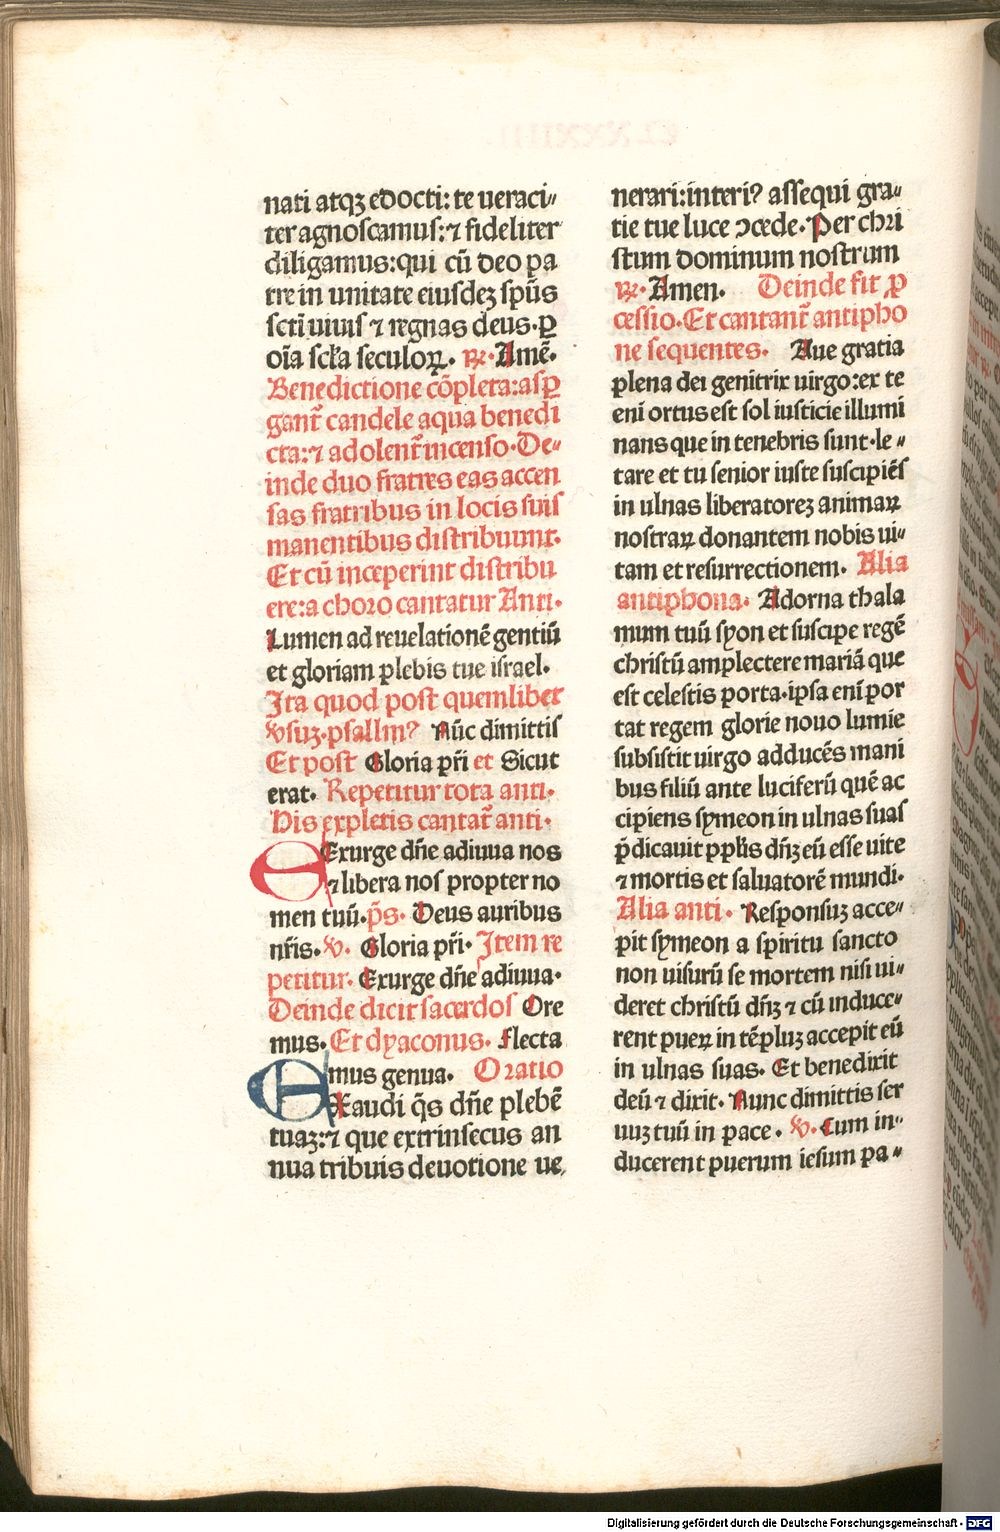 nati atqꝫ edocti: te ueraci⸗
ter agnoscamus: ⁊ fideliter
diligamus: qui cū deo pa
tre in unitate eiusdeꝫ spūs
scti uiuis ⁊ regnas deus. ꝑ
oīa scl̄a seculoꝝ. ℟. Amē.
Benedictione cōpleta: asꝑ
gant᷑ candele aqua benedi
cta: ⁊ adolent᷑ incenso. De⸗
inde duo fratres eas accen
sas fratribus in locis suis
manentibus distribuunt.
Et cū inceperint distribu
ere: a choro cantatur Anti.
Lumen ad reuelationē gentiū
et gloriam plebis tue israel.
Ita quod post quemlibet
℣suꝫ. psallm̄? Nūc dimittis
Et post Gloria pr̄i et Sicut
erat. Repetitur tota anti.
His expletis cantat᷑ anti.
Exurge dn̄e adiuua nos
⁊ libera nos propter no
men tuū. ps̄. Deus auribus
nr̄is. ℣. Gloria pr̄i. Item re
petitur. Exurge dn̄e adiuua.
Deinde dicit sacerdos Ore
mus. Et dyaconus. Flecta
mus genua. Oratio
EXaudi q̄s dn̄e plebē
tuaꝫ: ⁊ que extrinsecus an
nua tribuis deuotione ue
nerari: interi? assequi gra⸗
tie tue luce ↄcede. Per chri
stum dominum nostrum
℟. Amen. Deinde fit ꝓ
cessio. Et cantant᷑ antipho
ne sequentes. Aue gratia
plena dei genitrix uirgo: ex te
eni ortus est sol iusticie illumi
nans que in tenebris sunt. le⸗
tare et tu senior iuste suscipiēs
in ulnas liberatoreꝫ animaꝝ
nostraꝝ donantem nobis ui⸗
tam et resurrectionem. Alia
antiphona. Adorna thala
mum tuū syon et suscipe regē
christū amplectere mariā que
est celestis porta. ipsa eni por
tat regem glorie nouo lumie
subsistit uirgo adducēs mani
bus filiū ante luciferū quē ac
cipiens symeon in ulnas suas
p̄dicauit pplis dn̄ꝫ eū esse uite
⁊ mortis et saluatorē mundi.
Alia anti. Responsuꝫ acce⸗
pit symeon a spiritu sancto
non uisurū se mortem nisi ui⸗
deret christū dn̄ꝫ ⁊ cū induce⸗
rent pueꝝ in tēpluꝫ accepit eū
in ulnas suas. Et benedixit
deū ⁊ dixit. Nunc dimittis ser
uuꝫ tuū in pace. ℣. Cum in⸗
ducerent puerum iesum pa⸗
Digitalisierung gefördert durch die Deutsche Forschungsgemeinschaft - DFG